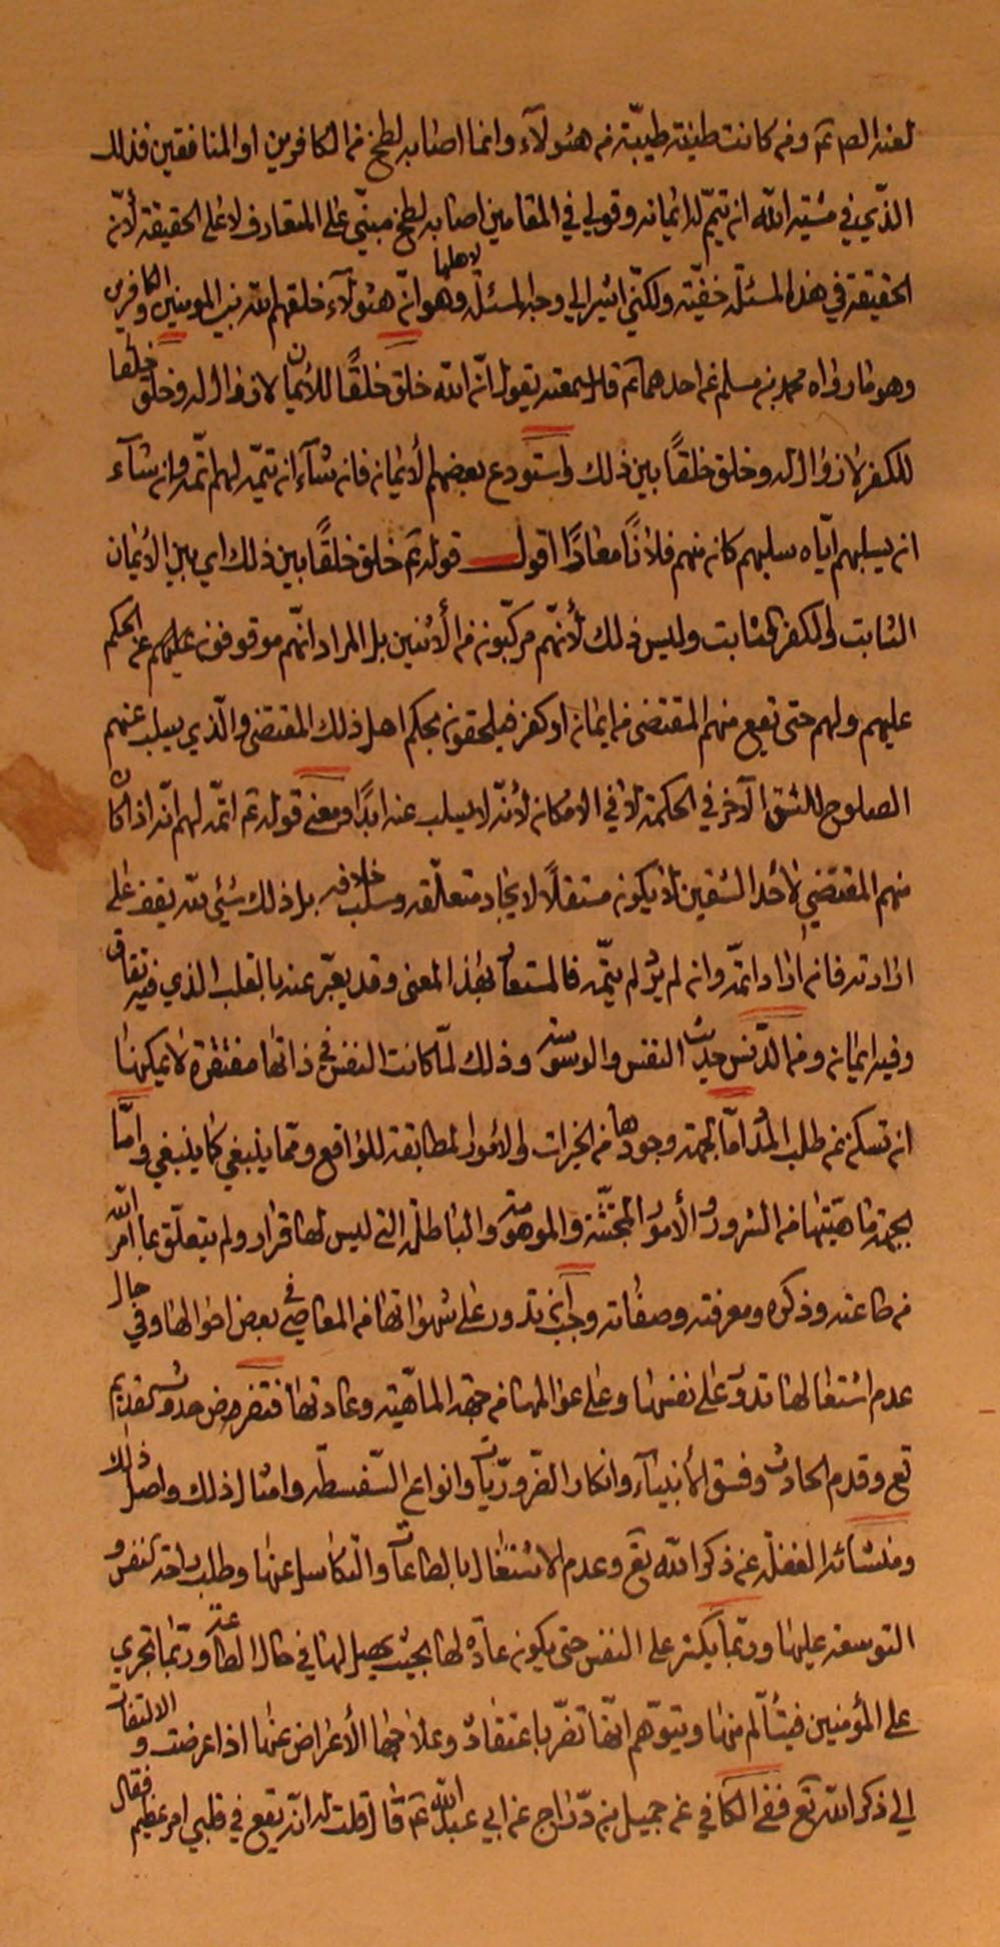 لعنه الص عم ومن كانت طينته طيبّة من هئولآء وانما اصابه لطخ من الكافرين او المنافقين فذلك
الذّي في مشيّة اللّه ان يتمّ له ايمانه وقولي في المقامين اصابه لطخ مبنّي على المتعارف لا على الحقيقة لأنّ
الحقيقة في هذه المسئلة خفيّة ولكنّي اشير الي وجه المسئلة لاهلها وهو انّ هئولآء خلقهم اللّه بين المومنين والكافرين
وهو ما رواه محمد بن مسلم عن احدهما عم قال سمعته يقول انّ اللّه خلق خلقًا للأيمان لا زوال له وخلق خلقا
للكفر لا زوال له وخلق خلقاً بين ذلك واستودع بعضهم الأيمان فان شآء ان يتمّه لهم اتمّه وان شآء
ان يسلبهم ايّاه سلبهم كان منهم فلان معارًا اقول قوله عم خلق خلقًا بين ذلك اي بين الأيمان
الثابت والكفر الثابت وليس ذلك لأنهّم مركّبون من الأثنين بل المراد انّهم موقوفون عن الحكم
عليهم ولهم حتى تقع منهم المقتضى من ايمان او كفر فيلحقون بحكم اهل ذلك المقتضى والّذي يسلب عنهم
الصلوح للشق الآخر في الحكمة لا في الامكان لأنّه لا يسلب عنه ابدًا ومعنى قوله عم اتمّه لهم انّه اذا كان
منهم المقتضي لأحد الشقين لا يكون مستقلاً لايجاد متعلّقه وسلب خلافه بل ذلك شيئي للّه يقف على
ارادته فان اراد اتمّه وان لم يرد لم يتمّه فالمستعار بهذا المعنى وقد يعبّر عنه بالقلب الذي فيه نفاق
وفيه ايمان ومن الدّنس حديث النفس والوسوسة وذلك لمّا كانت النفس في ذاتها مفتقرة لا يمكنها
ان تسكن عن طلب المدد امّا بجهة وجودها من الخيرات والأمور المطابقة للواقع وممّا ينبغي كما ينبغي وامّا
بجهة ماهيّتها من الشرور والأمور المجتثّة والموهومة والباطلة التي ليس لها قرار ولم يتعلّق بما امر اللّه
من طاعته وذكره ومعرفته وصفاته وجب ان تدور على شهواتها من المعاصي في بعض احوالها وفي حال
عدم اشتغالها تدور على نفسها وعلى عوالمها من جهة الماهيّة وعاداتها فتفرض حدوث القديم
تع وقدم الحادث وفسق الأنبيآء وانكار الضّروريّات وانواع السّفسطه وامثال ذلك واصل ذلك
ومنشائه الغفلة عن ذكر اللّه تع وعدم الاشتغال بالطاعات والتكاسل عنها وطلب راحة النفس و
التوسعة عليها وربّما يكثر على النفس حتى يكون عادّه لها بحيث يحصل لها في حال الطاعة وربّما تجري
على المؤمنين فيتألّم منها ويتوّهم انّها تضّر باعتقاده وعلاجها الأعراض عنها اذا عرضت والالتفات
الي ذكر اللّه تع ففي الكافي عن جميل بن درّاج عن ابي عبد اللّه عم قال قلت له انّه يقع في قلبي امر عظيم فقال